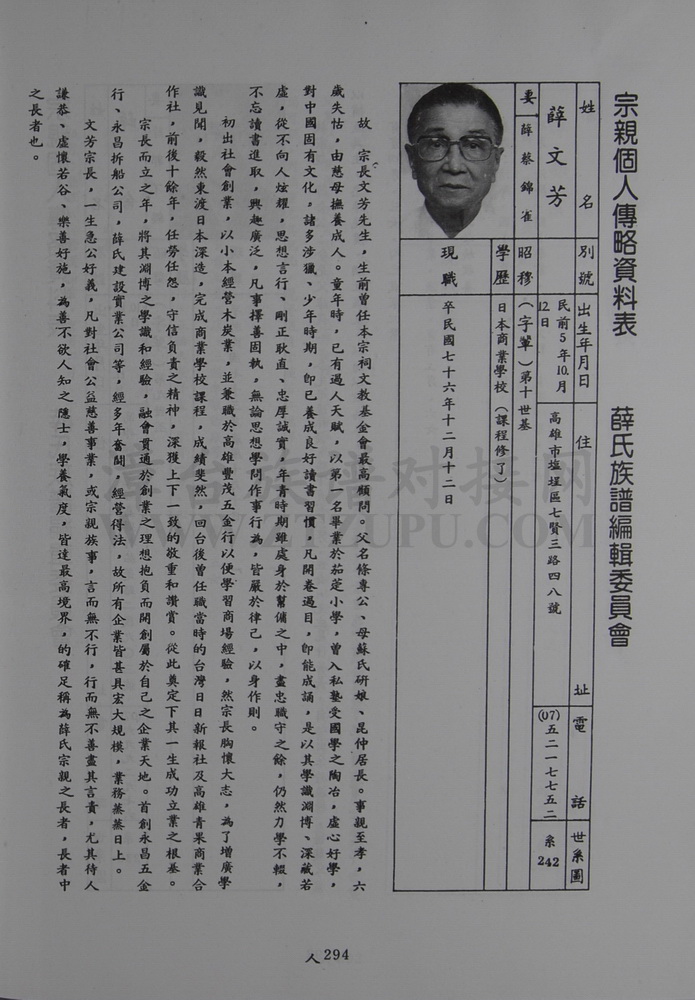 宗親個人傳略資料表　薛氏族譜編輯委員會
姓名　別號　出生年月日　住址　電話　世系圖
薛文芳　民前5年10月12日　高雄市塩埕區七賢三路四八號　(07)五二一七七五二　系242
妻　薛蔡錦雀　昭穆　（字輩）第十世基
學歷　日本商業學校（課程修了）
現職　卒民國七十六年十二月十二日
故　宗長文芳先生，生前曾任本宗祠文教基金會最高顧問。父名條專公、母蘇氏研娘、昆仲居長。事親至孝，六
歲失怙，由慈母撫養成人。童年時，已有過人天賦，以第一名畢業於茄萣小學，曾入私塾受國學之陶冶，虛心好學，
對中國固有文化，諸多涉獵、少年時期，即已養成良好讀書習慣，凡開卷過目，即能成誦，是以其學識淵博、深藏若
虛，從不向人炫耀，思想言行、剛正耿直、忠厚誠實，年青時期雖處身於幫傭之中，盡忠職守之餘，仍然力學不輟，
不忘讀書進取，興趣廣泛，凡事擇善固執，無論思想學問作事行為，皆嚴於律己，以身作則。
初出社會創業，以小本經營木炭業，並兼職於高雄豐茂五金行以便學習商場經驗，然宗長胸懷大志，為了增廣學
識見聞，毅然東渡日本深造，完成商業學校課程，成績斐然，回台後曾任職當時的台灣日日新報社及高雄青果商業合
作社，前後十餘年，任勞任怨，守信負責之精神，深獲上下一致的敬重和讚賞。從此奠定下其一生成功立業之根基。
宗長而立之年，將其淵博之學識和經驗，融會貫通於創業之理想抱負而開創屬於自己之企業天地。首創永昌五金
行、永昌拆船公司，薛氏建設實業公司等，經多年奮鬪，經營得法，故所有企業皆甚具宏大規模，業務蒸蒸日上。
文芳宗長，一生急公好義，凡對社會公益慈善事業，或宗親族事，言而無不行，行而無不善盡其言責，尤其待人
謙恭、虛懷若谷、樂善好施，為善不欲人知之隱士，學養氣度，皆達最高境界，的確足稱為薛氏宗親之長者，長者中
之長者也。
人294
漳台族譜对接网
WWW.ZTZUPU.COM